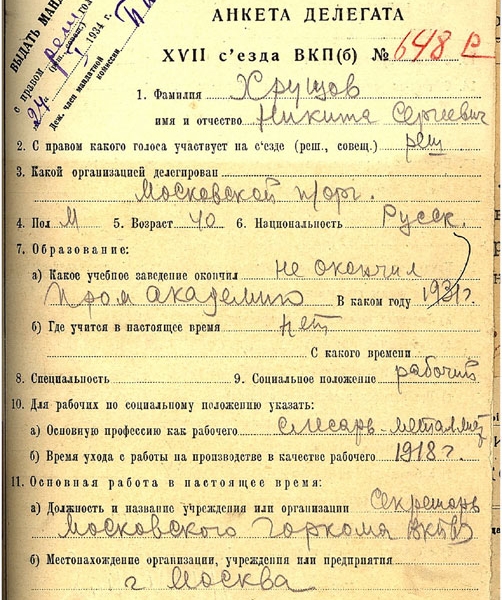 ВЫДАТЬ МАН
с правом реш гол
(реш., совещ.)
№ 24 1934 г.
Деж. член мандатной
комиссии
АНКЕТА ДЕЛЕГАТА
XVII с'езда ВКП(б) № 648 р
1. Фамилия Хрущов
имя и отчество Никита Сергеевич
2. С правом какого голоса участвует на с'езде (реш., совещ.) реш
3. Какой организацией делегирован
Московской п/орг.
4. Пол М 5. Возраст 40 6. Национальность Русск.
7. Образование:
а) Какое учебное заведение окончил не окончил
Пром академию В каком году 1931 г.
б) Где учится в настоящее время нет
С какого времени
8. Специальность 9. Социальное положение рабочий
10. Для рабочих по социальному положению указать:
а) Основную профессию как рабочего слесарь-металлист
б) Время ухода с работы на производстве в качестве рабочего 1918 г.
11. Основная работа в настоящее время:
а) Должность и название учреждения или организации Секретарь
Московского горкома ВКПб)
б) Местонахождение организации, учреждения или предприятия
г Москва